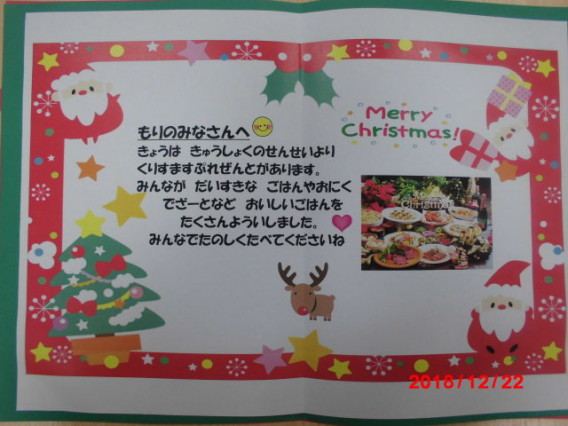 もりのみなさんへ
きょうは きゅうしょくのせんせいより
くりすますぷれぜんとがあります。
みんなが だいすきな ごはんやおにく
でざーとなど おいしいごはんを
たくさんよういしました。
みんなでたのしくたべてくださいね
Merry
Christmas!
Christmas
2018/12/22